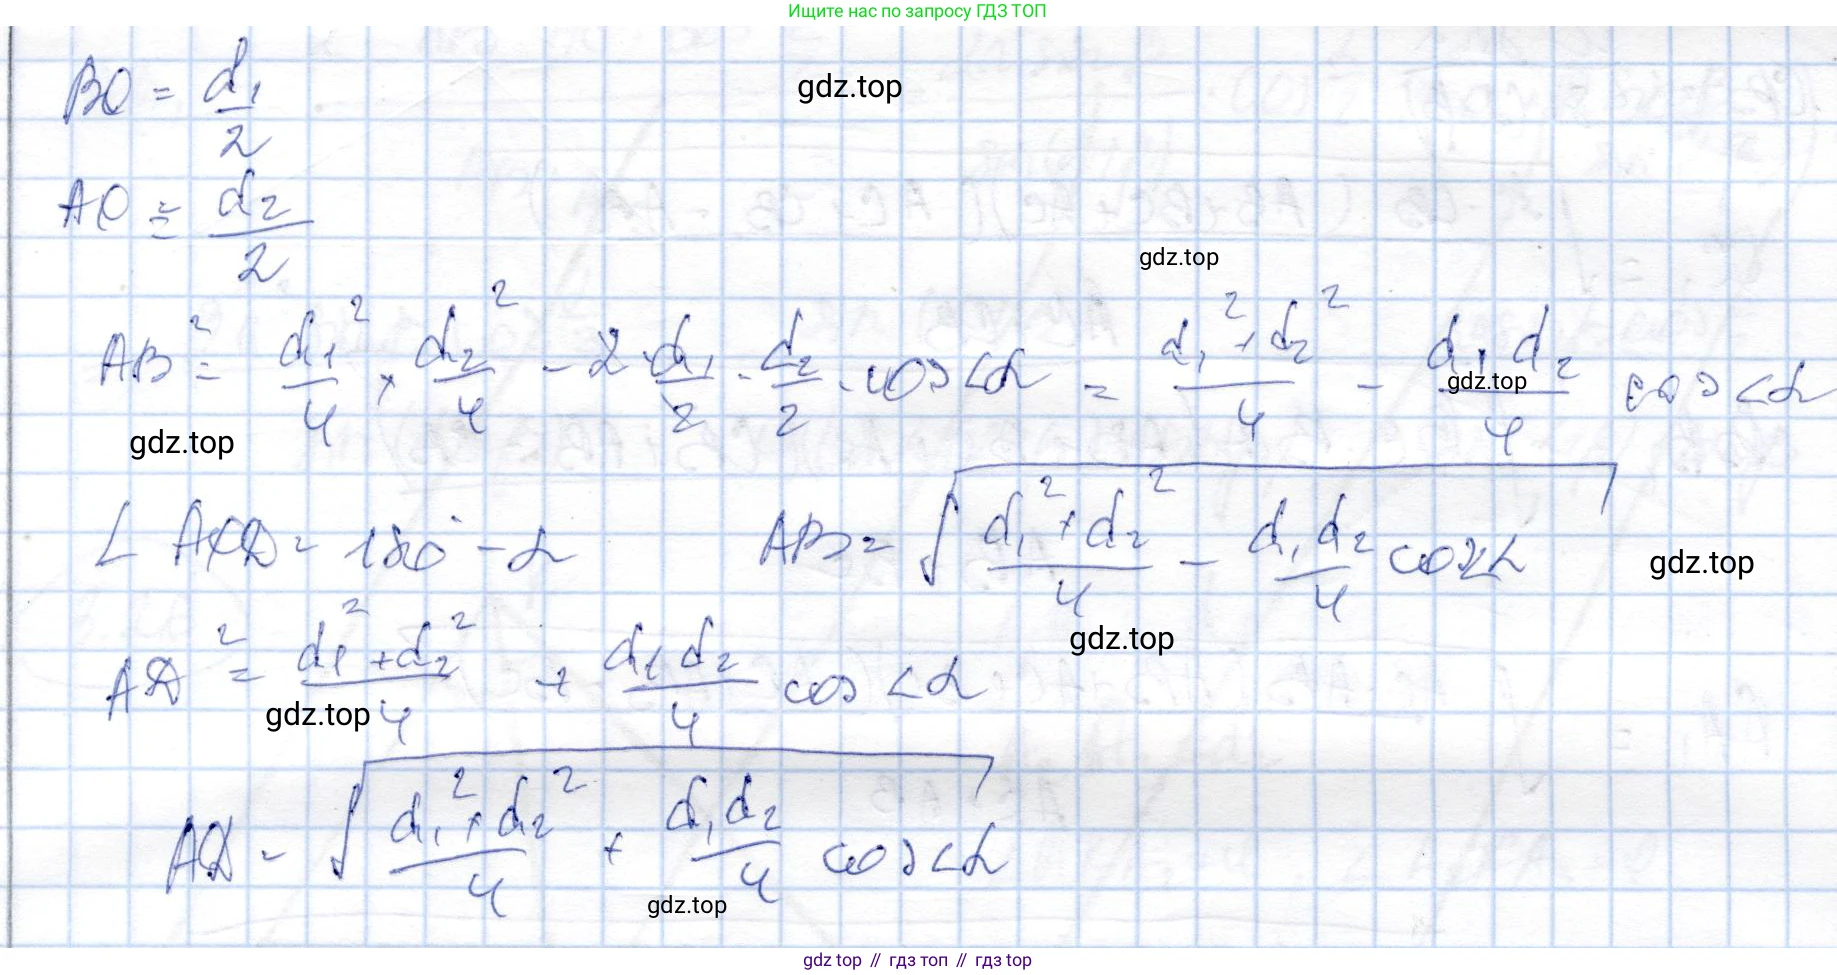 Ищите нас по запросу ГДЗ ТОП
BO = d₁/2
gdz.top
AO = d₂/2
gdz.top
AB² = d₁²/4 + d₂²/4 - 2 · d₁/2 · d₂/2 · cos<α = (d₁² + d₂²)/4 - d₁ d₂/4 cos<α
gdz.top
gdz.top
∠ AOD = 180° - α AB = √((d₁² + d₂²)/4 - d₁ d₂/4 cos∠α)
gdz.top
gdz.top
AD² = (d₁² + d₂²)/4 + d₁ d₂/4 cos <α
gdz.top
AD = √((d₁² + d₂²)/4 + d₁ d₂/4 cos<α)
gdz.top
gdz top // гдз топ // гдз top